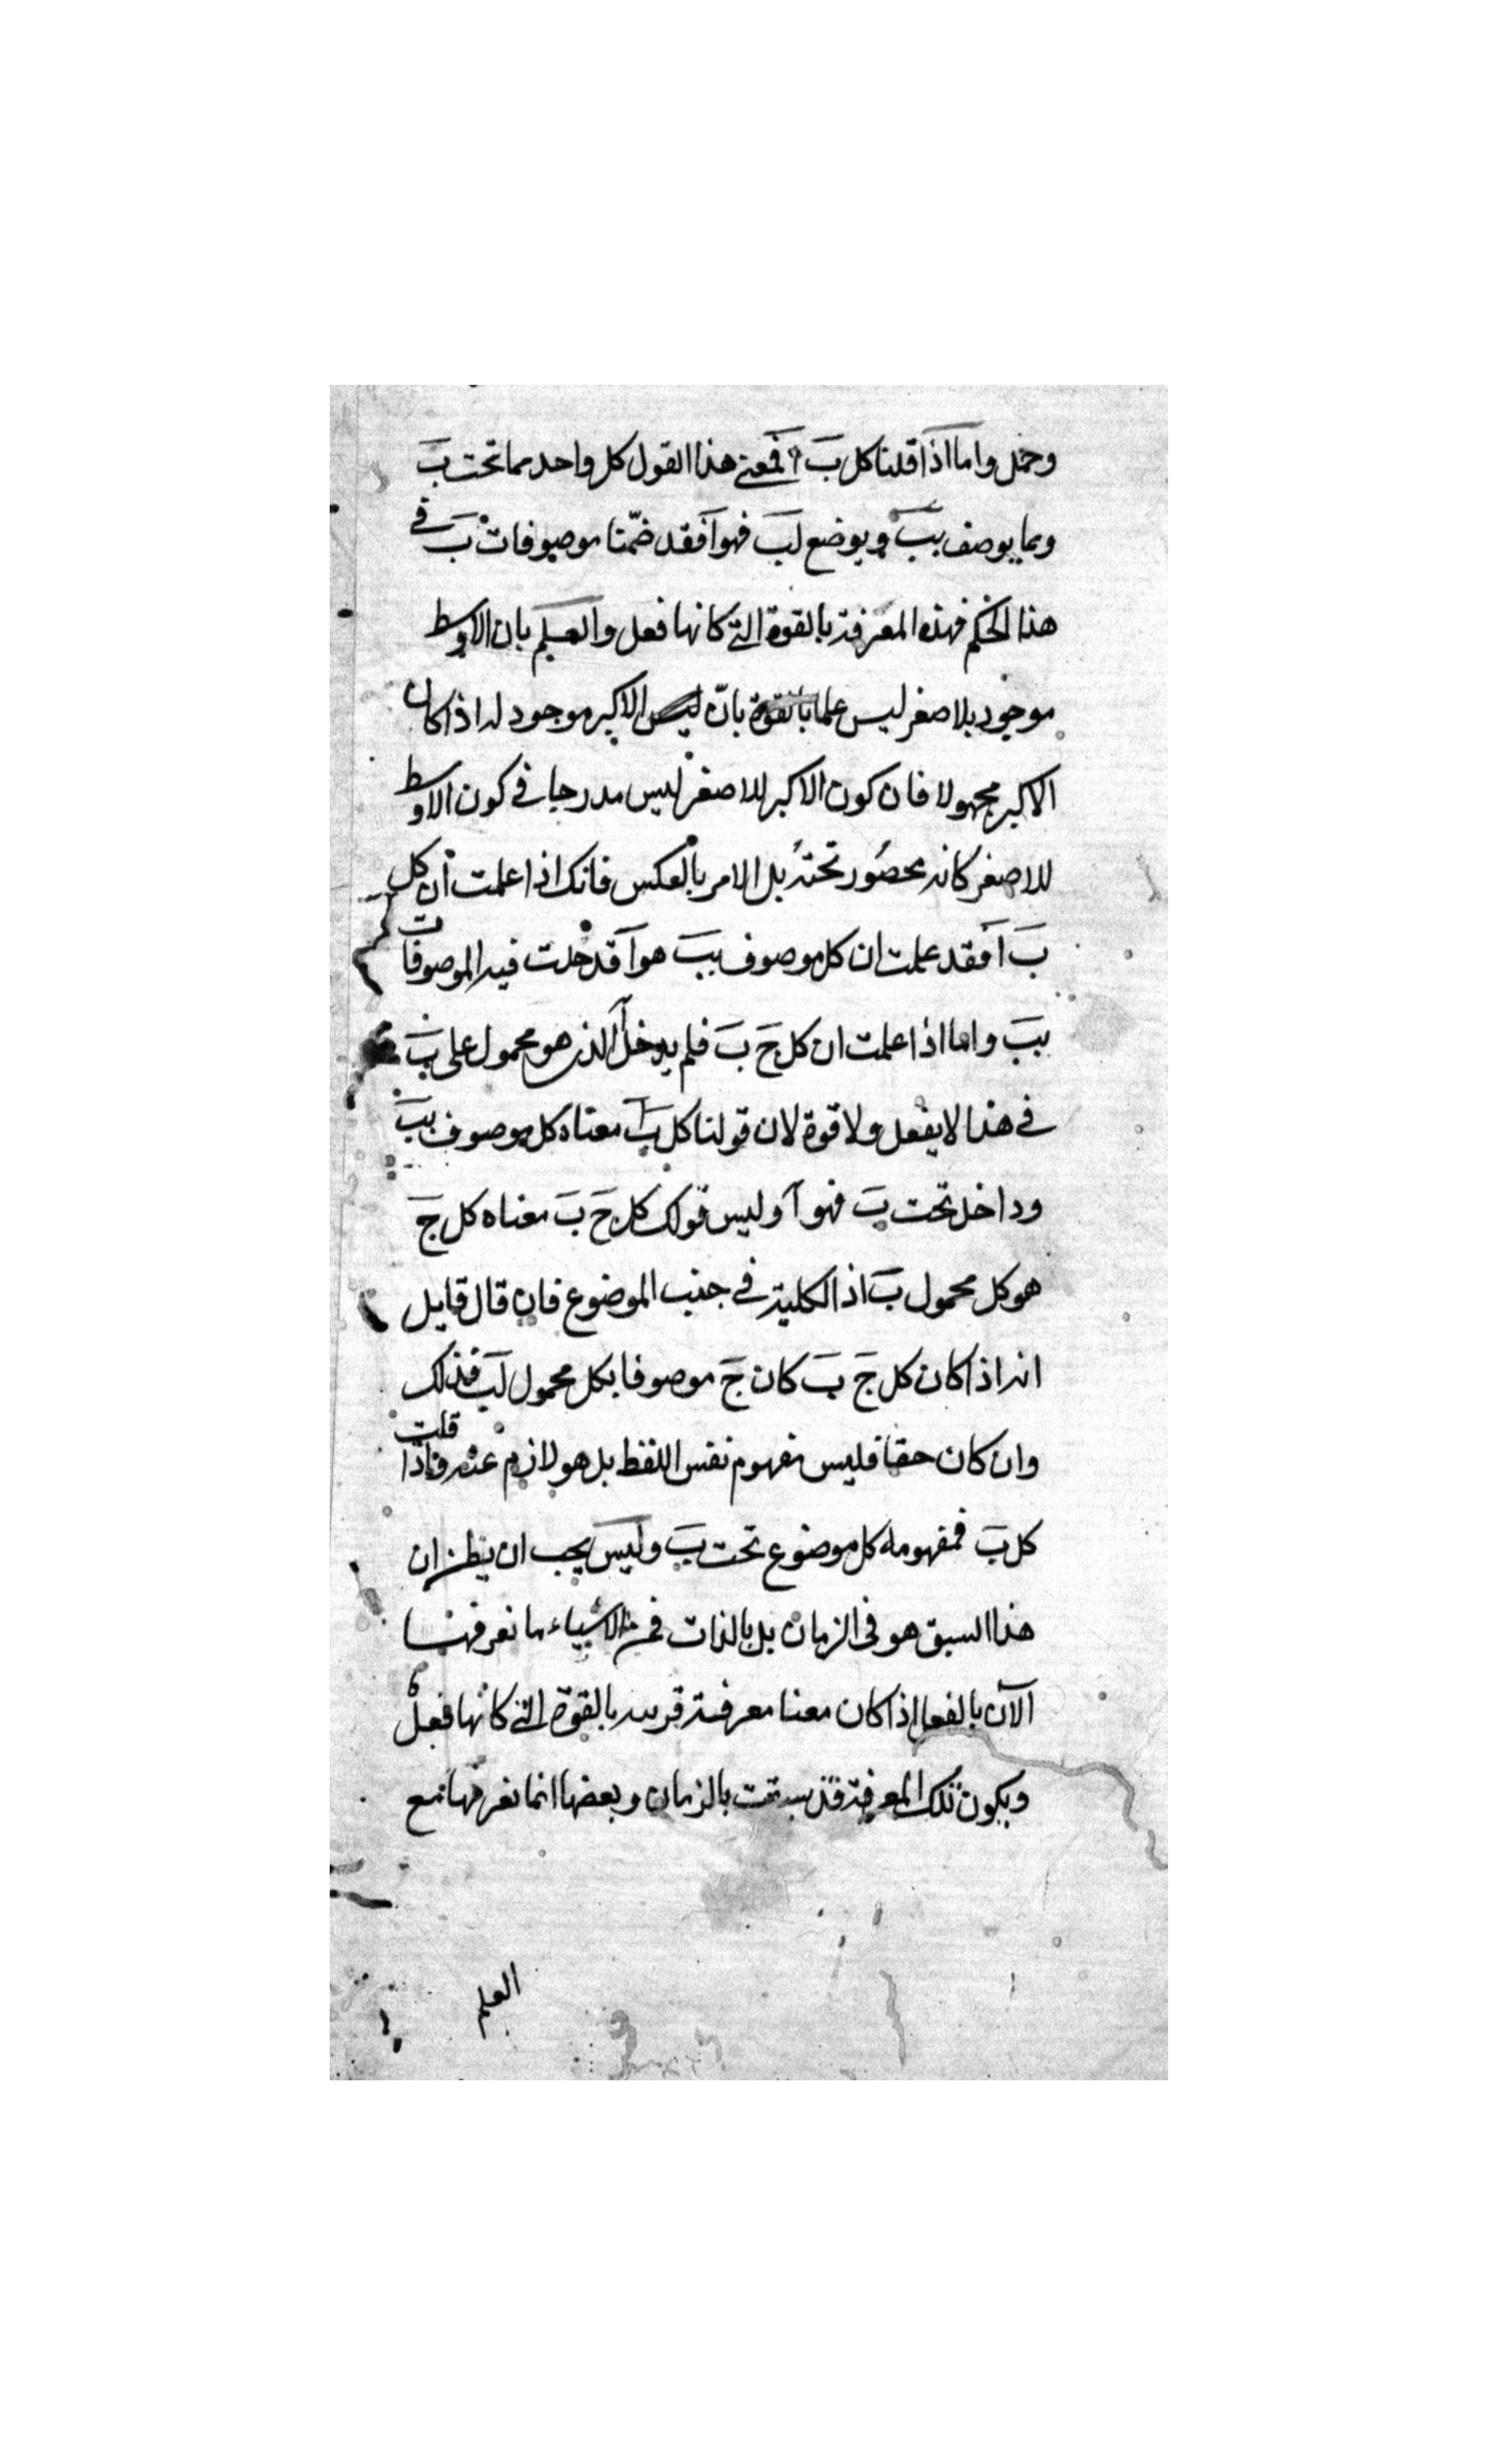 وحمل واما اذا قلنا كل بَ آ فمعنى هذا القول كل واحد مما تحت بَ
ومما يوصف ببَ ويوضع لبَ فهو آ فقد ضمّنا موصوفات بَ فى
هذا الحكم فهذه المعرفة بالقوة التى كانها فعل والعلم بان الاوسط
موجود للاصغر ليس علما بالقوة بانّ الاكبر موجود له اذا كان
الاكبر مجهولا فان كون الاكبر للاصغر ليس مدرجا فى كون الاوسط
للاصغر كانه محصُور تحتهُ بل الامر بالعكس فانك اذا علمت ان كل
بَ آ فقد علمت ان كل موصوف ببَ هو آ قد خلت فيه الموصوفات
ببَ واما اذا علمت ان كل جَ بَ فلم يدخل آ الذى هو محمول على بَ
فى هذا لا بفعل ولا قوة لان قولنا كل بَ آ معناه كل موصوف ببَ
وداخل تحت بَ فهو آ وليس قولك كل جَ بَ معناه كل جَ
هو كل محمول بَ اذ الكلية فى جنب الموضوع فان قال قايل
انه اذا كان كل جَ بَ كان جَ موصوفا بكل محمول لبَ فذلك
وان كان حقا فليس مفهوم نفس اللفظ بل هو لازم عنه فاذا قلت
كل بَ فمفهومه كل موضوع تحت بَ وليس يجب ان يظن ان
هذا السبق هو فى الزمان بل بالذات فمن الاشياء ما نعرفها
الآن بالفعل اذا كان معنا معرفة قريبه بالقوة التى كانها فعل
ويكون تلك المعرفة قد سبقت بالزمان وبعضها انما نعرفها مع
العلم